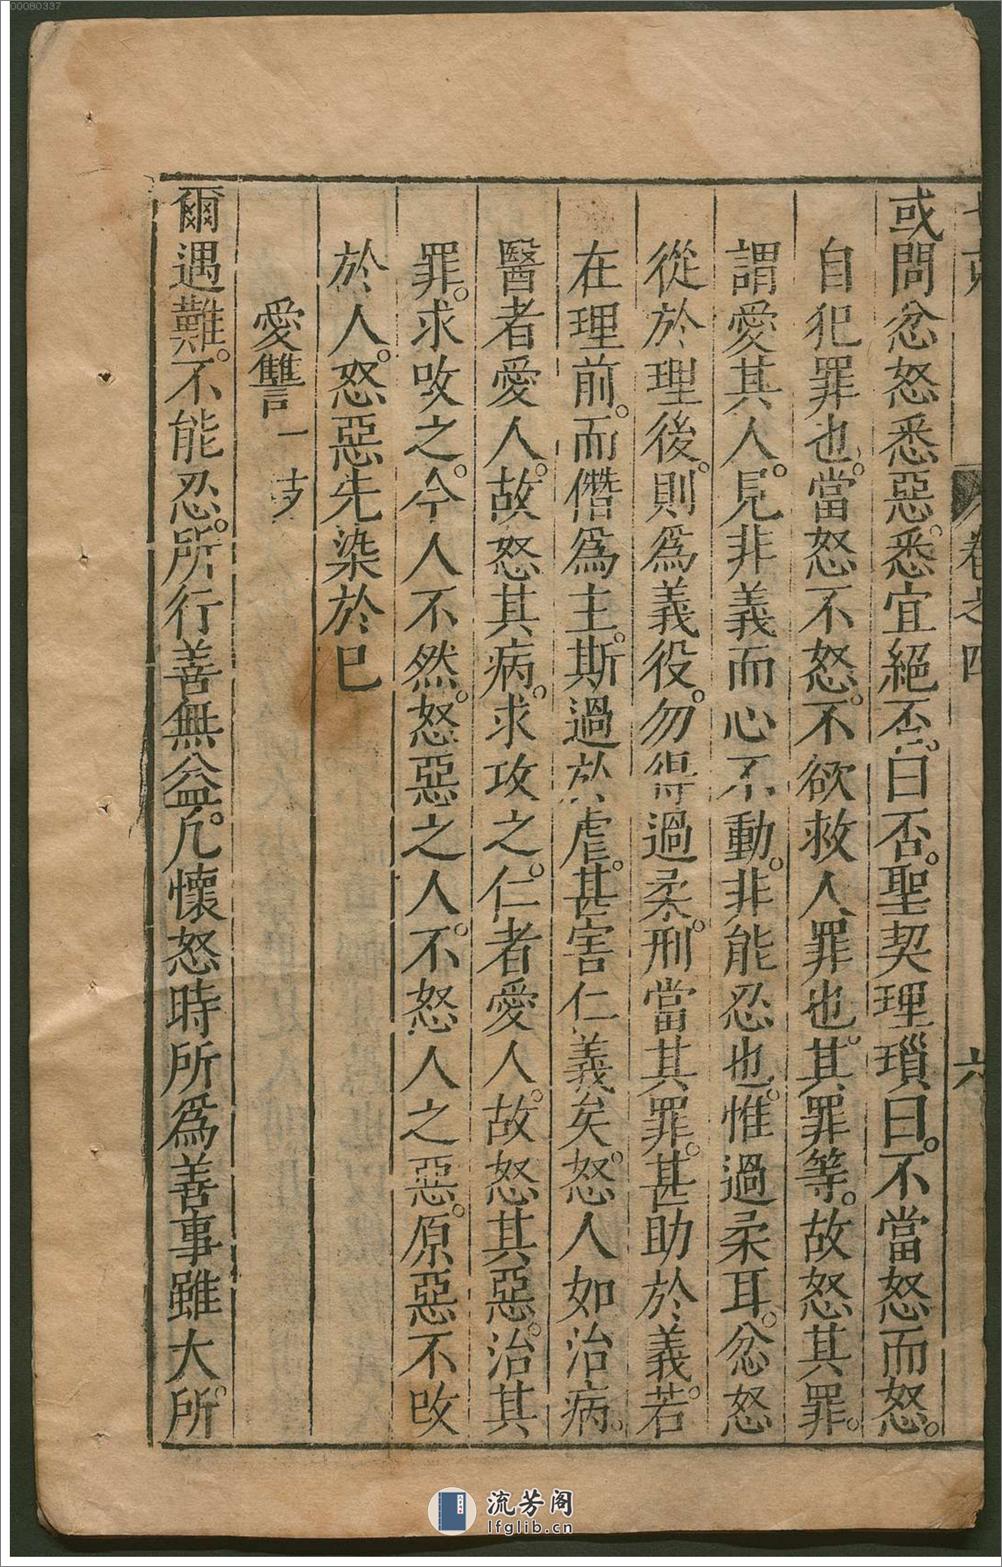 00080337
七克 卷之四 六
或問忿怒悉惡。悉宜絕否。曰否。聖契理瑣曰。不當怒而怒。
自犯罪也。當怒不怒。不欲救人罪也。其罪等。故怒其罪。
謂愛其人。見非義而心不動。非能忍也。惟過柔耳。忿怒
從於理後。則爲義役。勿得過柔。刑當其罪。甚助於義。若
在理前。而僭爲主。斯過於虐。甚害仁義矣。怒人如治病。
醫者愛人。故怒其病。求攻之。仁者愛人。故怒其惡。治其
罪。求攻之。今人不然。怒惡之人。不怒人之惡。原惡不改
於人。怒惡先染於己
愛讐一支
爾遇難。不能忍。所行善無益。凡懷怒時所爲善事雖大。所
流芳阁
lfglib.cn